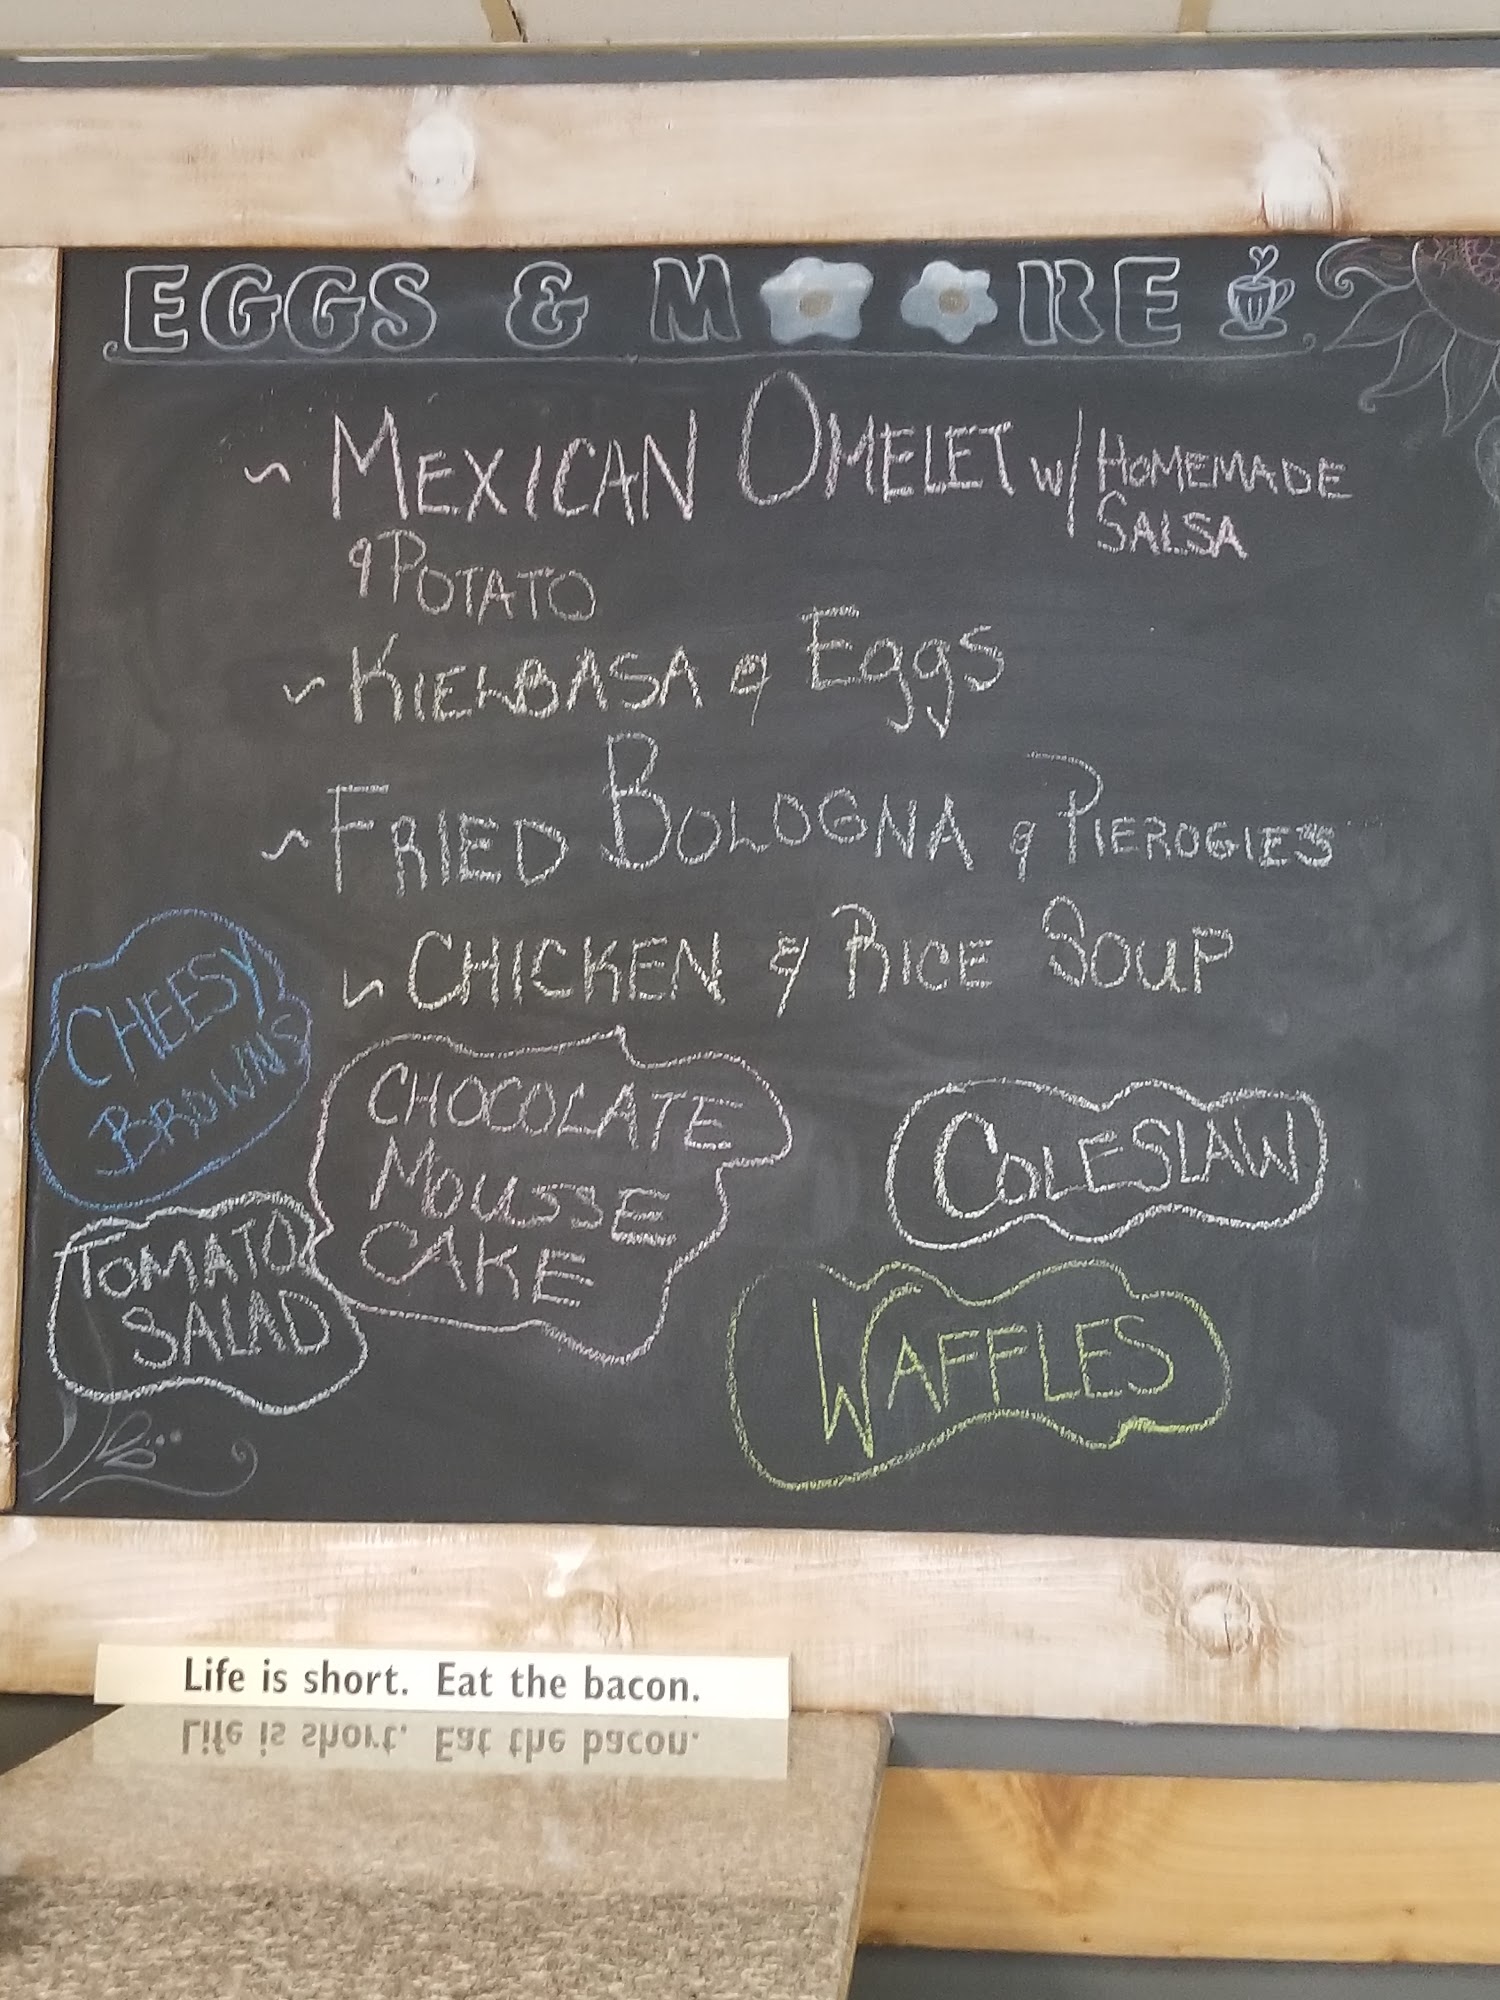 EGGS & MOORE
~ MEXICAN OMELET w/ HOMEMADE
SALSA
& POTATO
~ KIELBASA & EGGS
~ FRIED BOLOGNA & PIEROGIES
~ CHICKEN & RICE SOUP
CHEESY
BROWNS
CHOCOLATE
MOUSSE
CAKE
COLESLAW
TOMATO
SALAD
WAFFLES
Life is short. Eat the bacon.